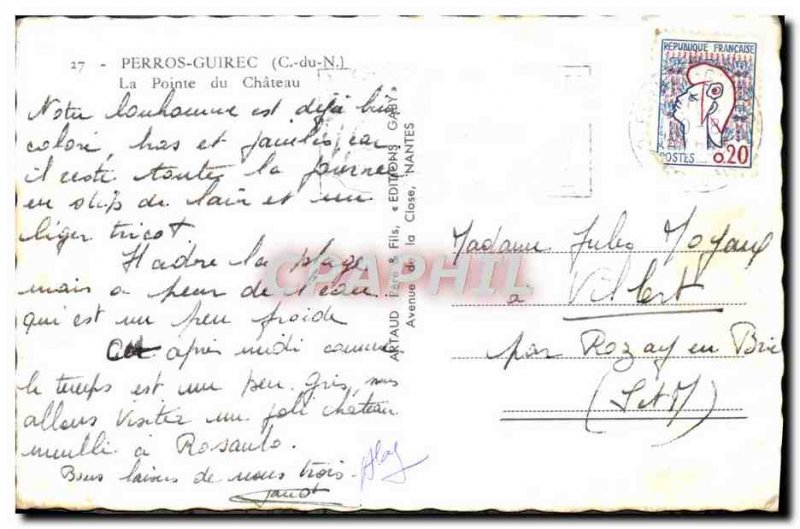 27 - PERROS-GUIREC (C.-du-N.)
La Pointe du Château
Notre bonhomme est déjà bien
coloré, bras et jambes, car
il reste toute la journée
en slip de bain et un
léger tricot
Il adore la plage
mais a peur de l'eau
qui est un peu froide
Cet après midi comme
le temps est un peu gris, nous
allons visiter un joli château
meublé à Rosanbo.
Bons baisers de nous trois.
ARTAUD Père & Fils, « EDITIONS GABY »
Avenue de la Close, NANTES
REPUBLIQUE FRANÇAISE
POSTES 0,20
Madame Jules
à Vilbert
par Rozay en Brie
(S et M)
CPAPHIL